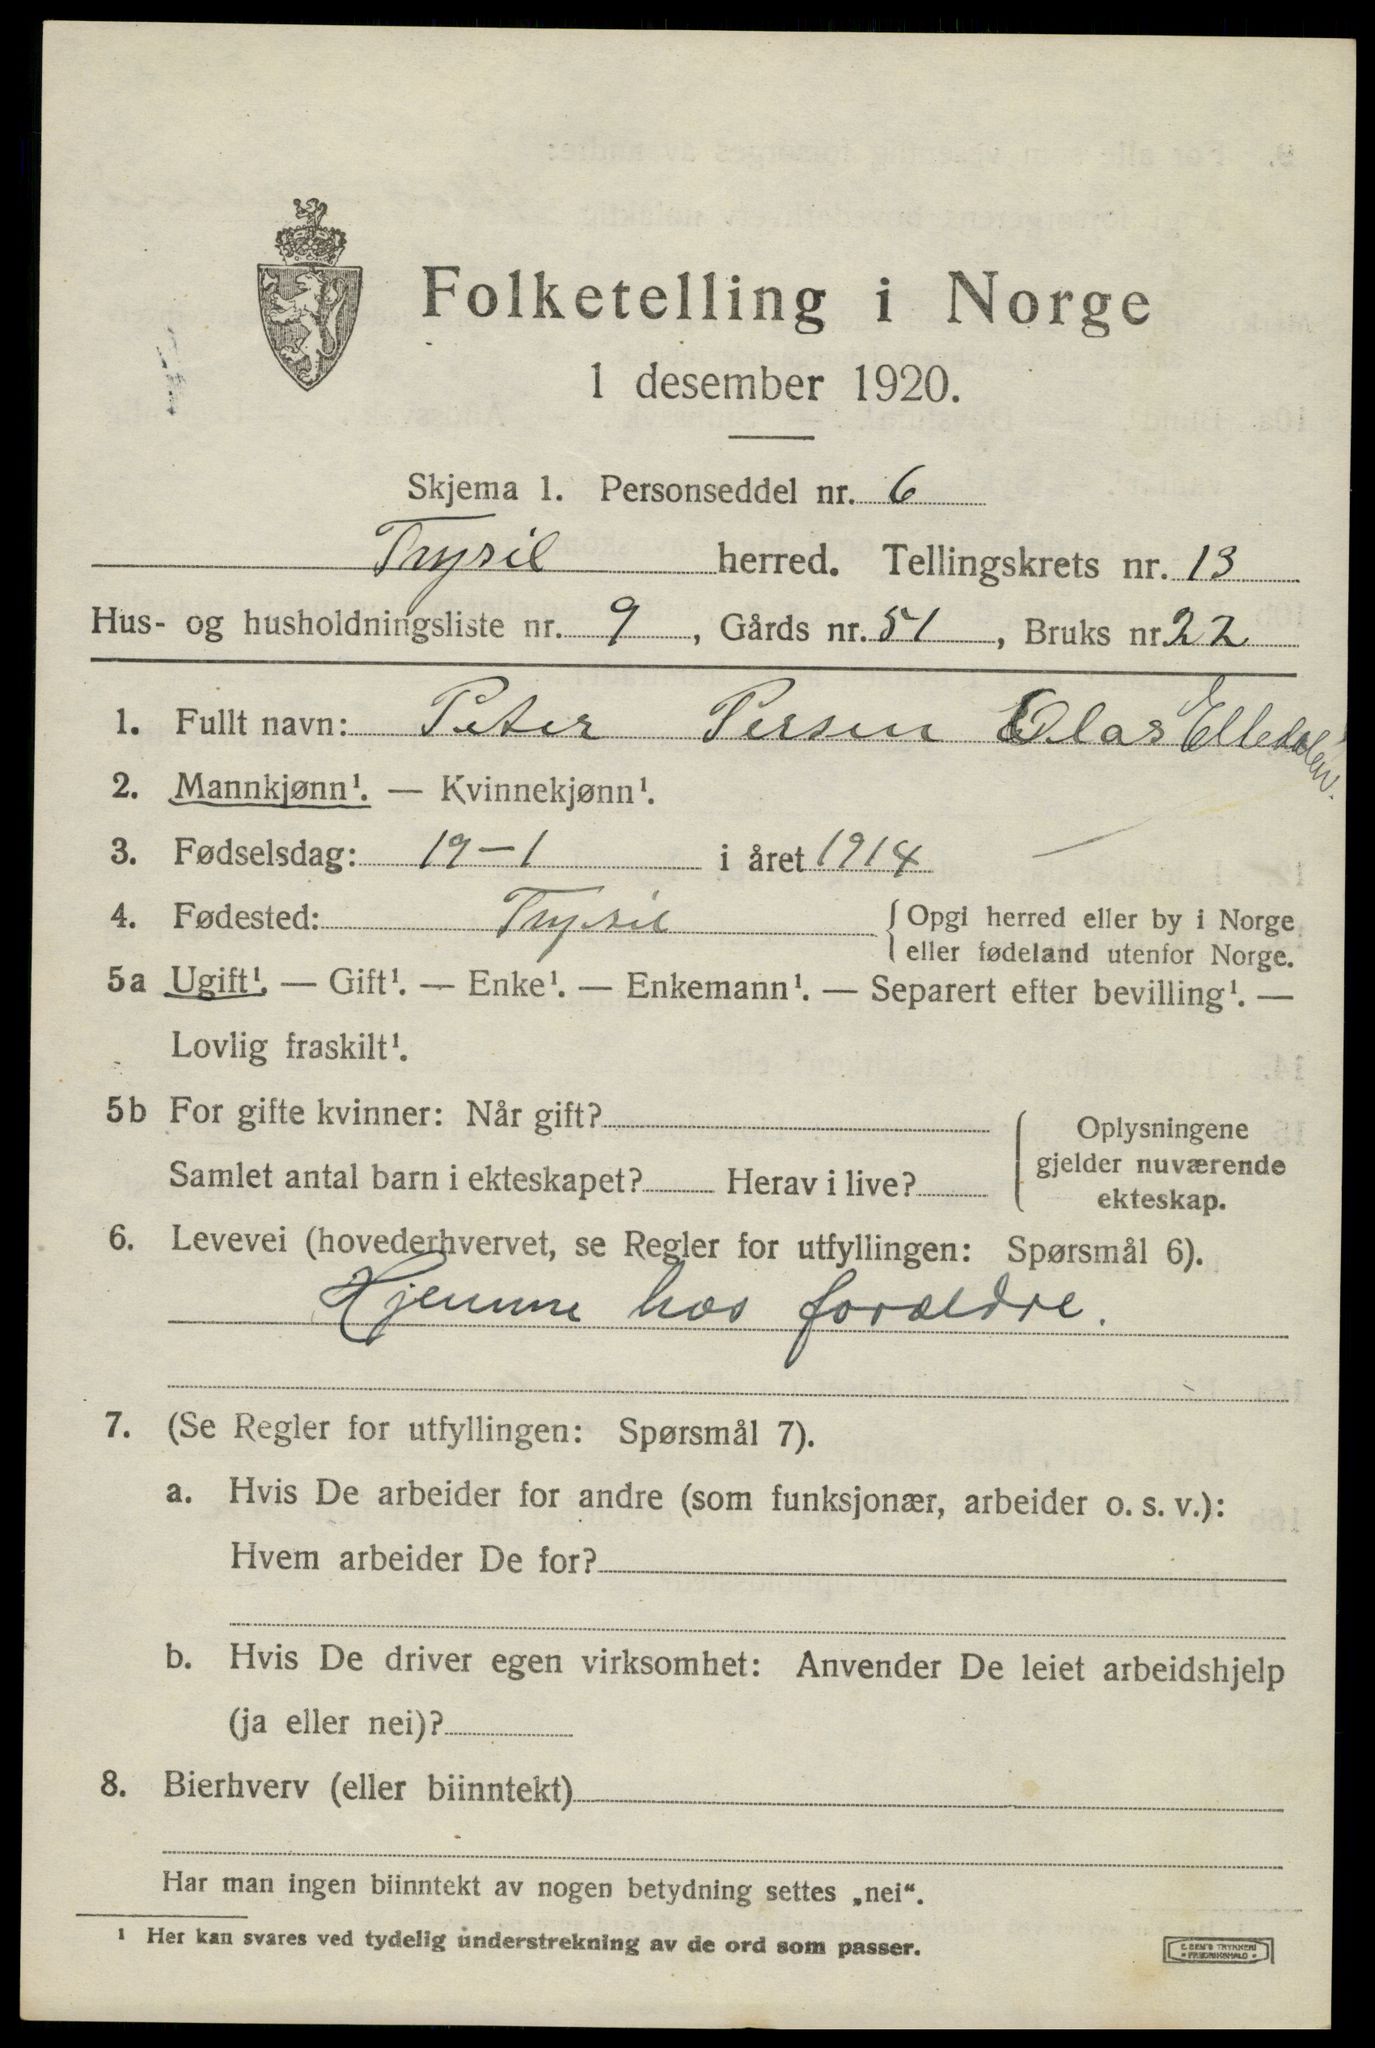 Folketelling i Norge
1 desember 1920.
Skjema 1. Personseddel nr. 6
Trysil herred. Tellingskrets nr. 13
Hus- og husholdningsliste nr. 9, Gårds nr. 51, Bruks nr. 22
1. Fullt navn: Peter Persen Olas Elledalen.
2. Mannkjønn¹. — Kvinnekjønn¹.
3. Fødselsdag: 19-1 i året 1914
4. Fødested: Trysil { Opgi herred eller by i Norge
eller fødeland utenfor Norge.
5a Ugift¹. — Gift¹. — Enke¹. — Enkemann¹. — Separert efter bevilling¹. —
Lovlig fraskilt¹.
5b For gifte kvinner: Når gift?
Samlet antal barn i ekteskapet? Herav i live?
Oplysningene
gjelder nuværende
ekteskap.
6. Levevei (hovederhvervet, se Regler for utfyllingen: Spørsmål 6).
Hjemme hos forældre.
7. (Se Regler for utfyllingen: Spørsmål 7).
a. Hvis De arbeider for andre (som funksjonær, arbeider o. s. v.):
Hvem arbeider De for?
b. Hvis De driver egen virksomhet: Anvender De leiet arbeidshjelp
(ja eller nei)?
8. Bierhverv (eller biinntekt)
Har man ingen biinntekt av nogen betydning settes „nei“.
¹ Her kan svares ved tydelig understrekning av de ord som passer.
E. SEM'S TRYKKERI
FREDRIKSHALD